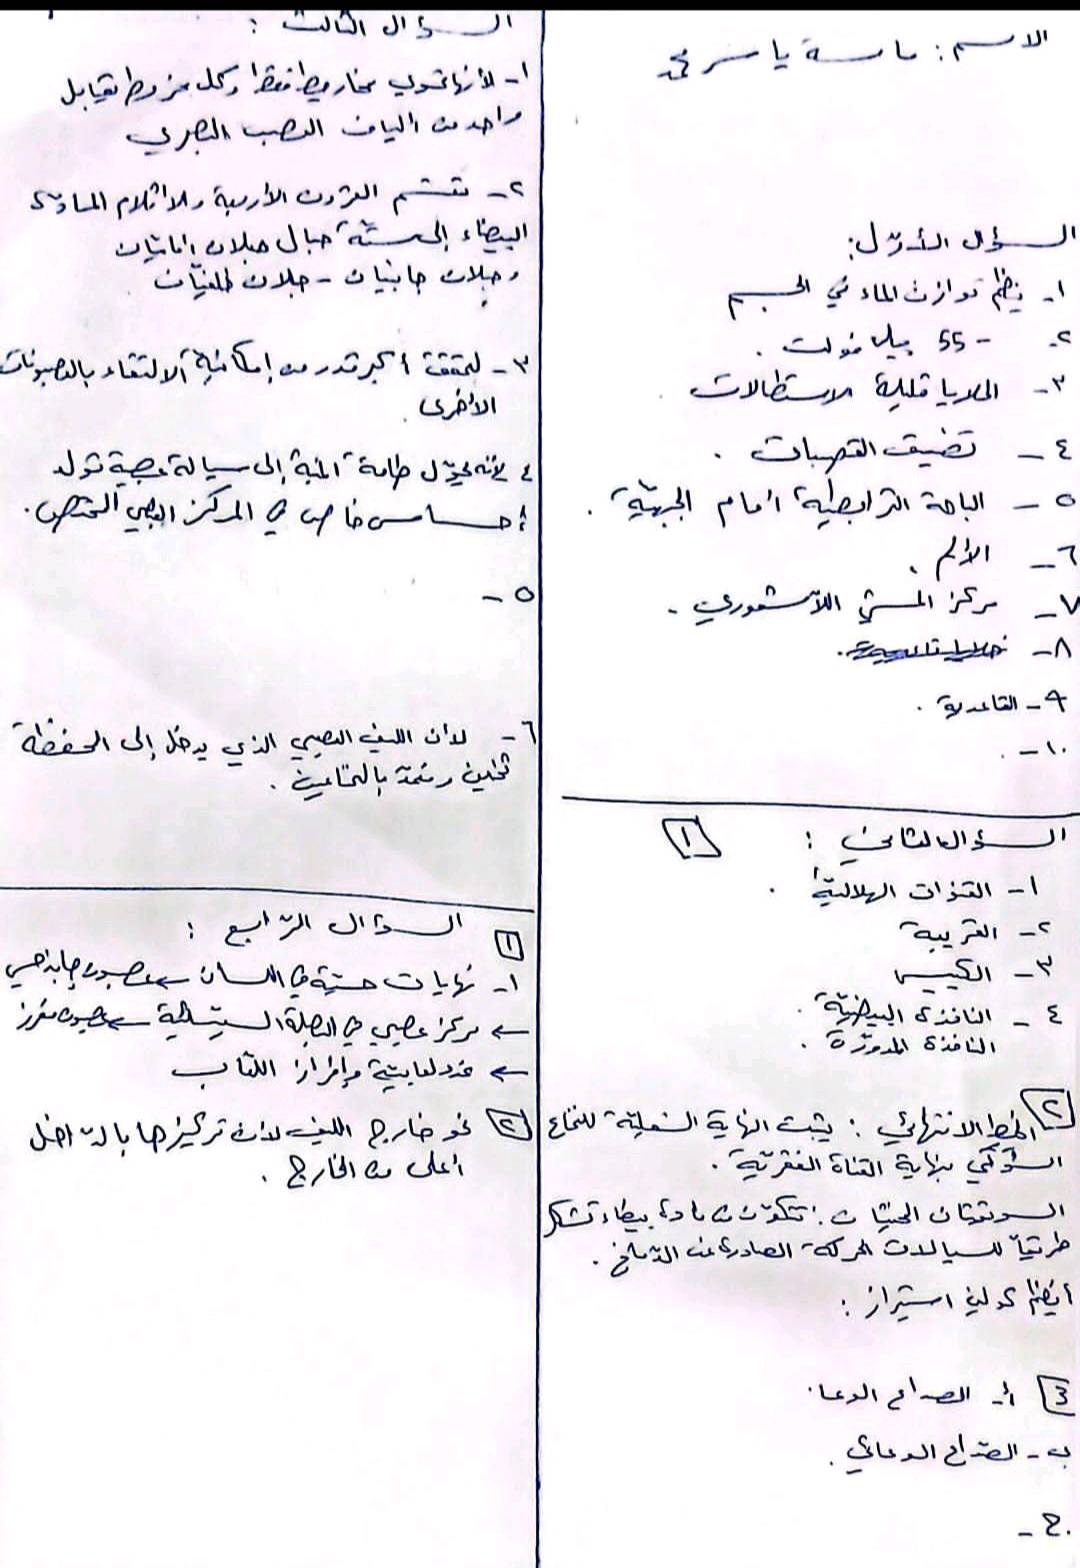 الاسم: ماسة ياسر محمد
السؤال الأول:
١- ينظم توازن الماء في الجسم
٢- 55 - ميلي فولت .
٣- الخلايا قليلة الاستطالات .
٤- تضيق القصبات .
٥- الباحة الترابطية أمام الجبهية .
٦- الألم .
٧- مركز المشي اللاشعوري .
٨-
٩- القاعدية .
١٠- .
السؤال الثاني : 1
١- القنوات الهلالية .
٢- القريبة
٣- الكييس
٤- النافذة البيضية .
النافذة المدورة .
2 الخيط الانتهائي : يثبت النهاية السفلية للنخاع
الشوكي بنهاية القناة الفقرية .
السويقتان المخيتان : تتكون من مادة بيضاء تشكل
طريقاً للسيالات المحركة الصادرة عن الدماغ .
أنظيم كولين استيراز :
3 أ- الصداع الوعا.
ب- الصداع الوعائي .
ج-
السؤال الثالث :
١- لأنها تحوي مخاريط فقط وكل مخروط يقابل
واحد من ألياف العصب البصري
٢- تقسم القرون الأربعة والأثلام المادة
البيضاء إلى ستة حبال حبلان أماميان
وحبلان جانبيان - حبلان خلفيان .
٣- لتحقق أكبر قدر من إمكانية الالتقاء بالعصبونات
الأخرى .
٤ لأنه يحول طاقة المنبه إلى سيالة عصبية تولد
إحساس خاص في المركز العصبي المختص .
٥-
٦- لأن الليف العصبي الذي يدخل إلى المحفظة
ثخين ومغمد بالنخاعين .
السؤال الرابع :
1 ١- نهايات حسية في اللسان ← عصبون جابذ حسي
← مركز عصبي في البصلة السيسائية ← عصبون مفرز
← غدد لعابية وإفراز اللعاب
2 نحو خارج الليف لأن تركيزها بالداخل
أعلى من الخارج .